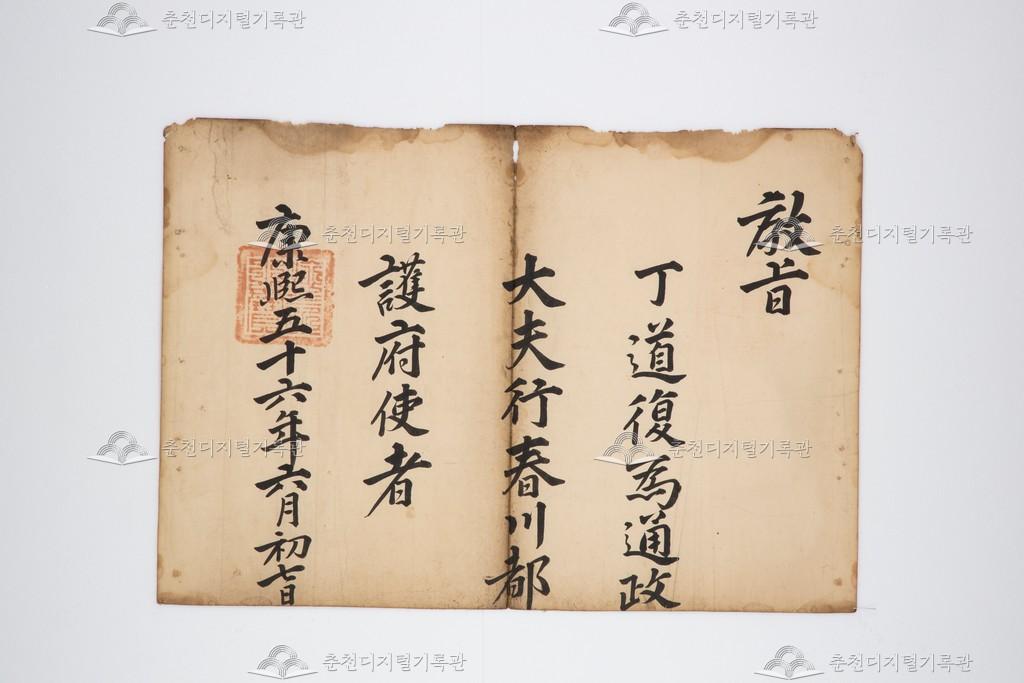 敎旨
丁道復爲通政
大夫行春川都
護府使者
康熙五十六年六月初七日
춘천디지털기록관
춘천디지털기록관
춘천디지털기록관
춘천디지털기록관
춘천디지털기록관
춘천디지털기록관
춘천디지털기록관
춘천디지털기록관